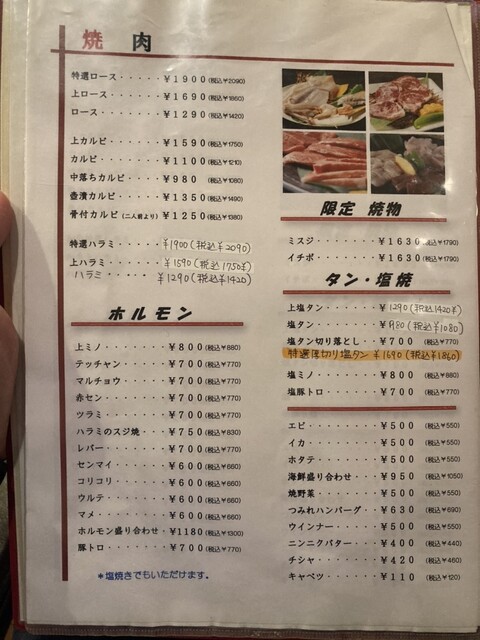 焼 肉
特選ロース・・・・・￥1900(税込￥2090)
上ロース・・・・・・・￥1690(税込￥1860)
ロース・・・・・・・・￥1290(税込￥1420)
上カルビ・・・・・・・￥1590(税込￥1750)
カルビ・・・・・・・・￥1100(税込￥1210)
中落ちカルビ・・・・￥980 (税込￥1080)
壺漬カルビ・・・・・￥1350(税込￥1490)
骨付カルビ(二人前より)￥1250(税込￥1380)
特選ハラミ・・・・・￥1900(税込￥2090)
上ハラミ・・・・・￥1590(税込1750￥)
ハラミ・・・・・￥1290(税込￥1420)
ホルモン
上ミノ・・・・・・・・￥800(税込￥880)
テッチャン・・・・・・￥700(税込￥770)
マルチョウ・・・・・・￥700(税込￥770)
赤セン・・・・・・・・￥700(税込￥770)
ツラミ・・・・・・・・￥700(税込￥770)
ハラミのスジ焼・・・￥750(税込￥830)
レバー・・・・・・・・￥700(税込￥770)
センマイ・・・・・・・￥600(税込￥660)
コリコリ・・・・・・・￥600(税込￥660)
ウルテ・・・・・・・・￥600(税込￥660)
マメ・・・・・・・・・￥600(税込￥660)
ホルモン盛り合わせ・￥1180(税込￥1300)
豚トロ・・・・・・・・￥700(税込￥770)
＊塩焼きでもいただけます。
限定 焼物
ミスジ・・・・・・・・￥1630(税込￥1790)
イチボ・・・・・・・・￥1630(税込￥1790)
タン・塩焼
上塩タン・・・・・・・￥1290(税込1420￥)
塩タン・・・・・・・・￥980(税込￥1080)
塩タン切り落とし・・￥700 (税込￥770)
特選厚切り塩タン ￥1690(税込￥1860)
塩ミノ・・・・・・・・￥800 (税込￥880)
塩豚トロ・・・・・・・￥700 (税込￥770)
エビ・・・・・・・・・￥500 (税込￥550)
イカ・・・・・・・・・￥500 (税込￥550)
ホタテ・・・・・・・・￥500 (税込￥550)
海鮮盛り合わせ・・・￥950 (税込￥1050)
焼野菜・・・・・・・・￥500 (税込￥550)
つみれハンバーグ・・￥630 (税込￥690)
ウインナー・・・・・・￥500 (税込￥550)
ニンニクバター・・・￥400 (税込￥440)
チシャ・・・・・・・・￥420 (税込￥460)
キャベツ・・・・・・・￥110 (税込￥120)